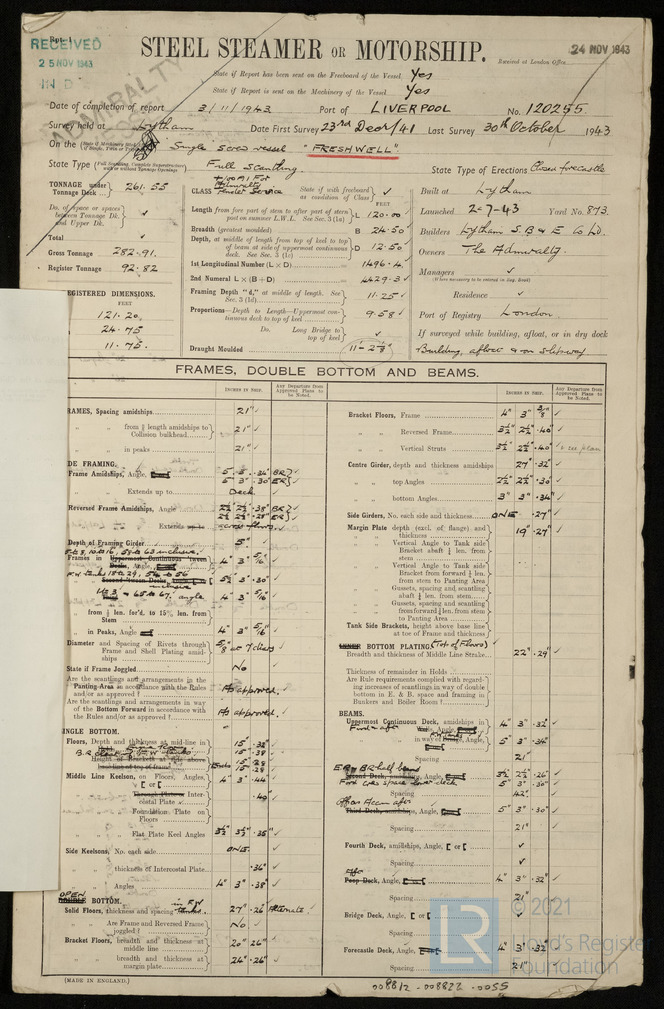 Rpt. 1
RECEIVED
25 NOV 1943
IN D
24 NOV 1943
STEEL STEAMER OR MOTORSHIP.
Received at London Office
State if Report has been sent on the Freeboard of the Vessel Yes
State if Report is sent on the Machinery of the Vessel Yes
ADMIRALTY
Date of completion of report 3/11/1943 Port of LIVERPOOL No. 120255.
Survey held at Lytham Date First Survey 23rd Decr/41 Last Survey 30th October 1943
On the Single screw vessel "FRESHWELL"
State Type Full scantling State Type of Erections Closed forecastle
TONNAGE under Tonnage Deck 261.55
Do. of space or spaces between Tonnage Dk. and Upper Dk. ✓
Total ✓
Gross Tonnage 282.91.
Register Tonnage 92.82
REGISTERED DIMENSIONS.
FEET
121.20
24.75
11.75.
CLASS +100A1 For Admiralty Tender Service State if with freeboard as condition of Class ✓
Length from fore part of stem to after part of stern post on summer L.W.L. See Sec. 3 (1a) L 120.00 ✓
Breadth (greatest moulded) B 24.50 ✓
Depth, at middle of length from top of keel to top of beam at side of uppermost continuous deck. See Sec. 3 (1c) D 12.50 ✓
1st Longitudinal Number (L × D) 1496.4 ✓
2nd Numeral L × (B + D) 4429.3 ✓
Framing Depth "d," at middle of length. See Sec. 3 (1d) 11.25 ✓
Proportions—Depth to Length—Uppermost continuous deck to top of keel 9.58 ✓
Do. Long Bridge to top of keel ✓
Draught Moulded 11'-2⅞"
Built at Lytham
Launched 2-7-43 Yard No. 873.
Builders Lytham S.B & E Co Ld.
Owners The Admiralty.
Managers ✓
Residence ✓
Port of Registry London.
If surveyed while building, afloat, or in dry dock
Building, afloat & on slipway
FRAMES, DOUBLE BOTTOM AND BEAMS.
INCHES IN SHIP.
Any Departure from Approved Plans to be Noted.
INCHES IN SHIP.
Any Departure from Approved Plans to be Noted.
RAMES, Spacing amidships 21" ✓
" " from ⅕ length amidships to Collision bulkhead 21" ✓
" " in peaks 21" ✓
DE FRAMING.
Frame Amidships, Angle, 5 . 3 . .34" BR ✓
5 . 3" .30" ER ✓
" " Extends up to Deck
Reversed Frame Amidships, Angle 2½" 2½" .38" BR ✓
2½" 2½" .28" ER ✓
" " Extends up to
Depth of Framing Girder 5" ✓
Frames in Uppermost Continuous 'tween Decks, Angle, 4" 3" 5/16" ✓
Second 'tween Decks 5½" 3" .30" ✓
angle 4" 3" 5/16" ✓
" " from ⅕ len. for'd. to 15% len. from Stem ✓
" " in Peaks, Angle 4" 3" 5/16" ✓
Diameter and Spacing of Rivets through Frame and Shell Plating amidships ⅝" at 7 diars ✓
State if Frame Joggled No ✓
Are the scantlings and arrangements in the Panting Area in accordance with the Rules and/or as approved? As approved.
Are the scantlings and arrangements in way of the Bottom Forward in accordance with the Rules and/or as approved? As approved. ✓
INGLE BOTTOM.
Floors, Depth and thickness at mid-line in 15" .32" ✓
Middle Line Keelson, on Floors, Angles, [ or [ 4" 3" .44" ✓
" " Intercostal Plate .40" ✓
" " Foundation Plate on Floors ✓
" " Flat Plate Keel Angles 3½" 3½" .35" ✓
Side Keelsons, No. each side ONE. ✓
" " thickness of Intercostal Plate .36" ✓
" " Angles 4" 3" .38" ✓
OPEN
DOUBLE BOTTOM. in FW tanks.
Solid Floors, thickness and spacing 27" .26" Alternate.
" " Are Frame and Reversed Frame joggled? No ✓
Bracket Floors, breadth and thickness at middle line 20" .26" ✓
" " breadth and thickness at margin plate 24" .26" ✓
Bracket Floors, Frame 4" 3" 3/8" ✓
" " Reversed Frame 3½" 2½" .40" ✓
" " Vertical Struts 3½" 2½" .40" ✓ to see plan
Centre Girder, depth and thickness amidships 27" .32" ✓
" " top Angles 2½" 2½" .30" ✓
" " bottom Angles 3" 3" .34" ✓
Side Girders, No. each side and thickness ONE .27" ✓
Margin Plate depth (excl. of flange) and thickness 19" .27" ✓
" " Vertical Angle to Tank side Bracket abaft ¼ len. from stem
" " Vertical Angle to Tank side Bracket from forward ¼ len. from stem to Panting Area
" " Gussets, spacing and scantling abaft ¼ len. from stem
" " Gussets, spacing and scantling from forward ¼ len. from stem to Panting Area
Tank Side Brackets, height above base line at toe of Frame and thickness
INNER BOTTOM PLATING (Top of Floors) ✓
Breadth and thickness of Middle Line Strake 22" .29" ✓
Thickness of remainder in fields
Are Rule requirements complied with regarding increases of scantlings in way of double bottom in E. & B. space and framing in Bunkers and Boiler Room?
BEAMS.
Uppermost Continuous Deck, amidships in 4" 3" .32" ✓
Fore & aft
in way of 5" 3" .34" ✓
Spacing 21" ✓
ER & BR half beams
Second Deck, amidships, 3½" 2½" .26" ✓
5" 3" .30" ✓
Spacing 42" ✓
Third Deck, amidships, Angle, 5" 3" .30" ✓
Spacing 21" ✓
Fourth Deck, amidships, Angle, [ or [ ✓
Spacing ✓
Poop Deck, Angle, 4" 3" .32" ✓
Spacing 21" ✓
Bridge Deck, Angle, [ or [ ✓
Spacing ✓
Forecastle Deck, Angle, 4" 3" .32
Spacing 21"
© 2021
LR
Lloyd's Register
Foundation
(MADE IN ENGLAND.)
008812 - 008822 - 0055